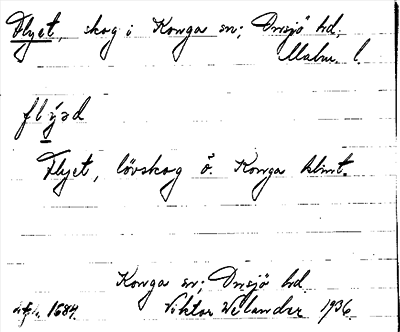 Flyet, skog i Konga sn; Onsjö hd;
Malm. l.
flýəd
Flyet, lövskog ö. Konga klint.
Konga sn; Onsjö hd
1684. Viktor Welander 1936.